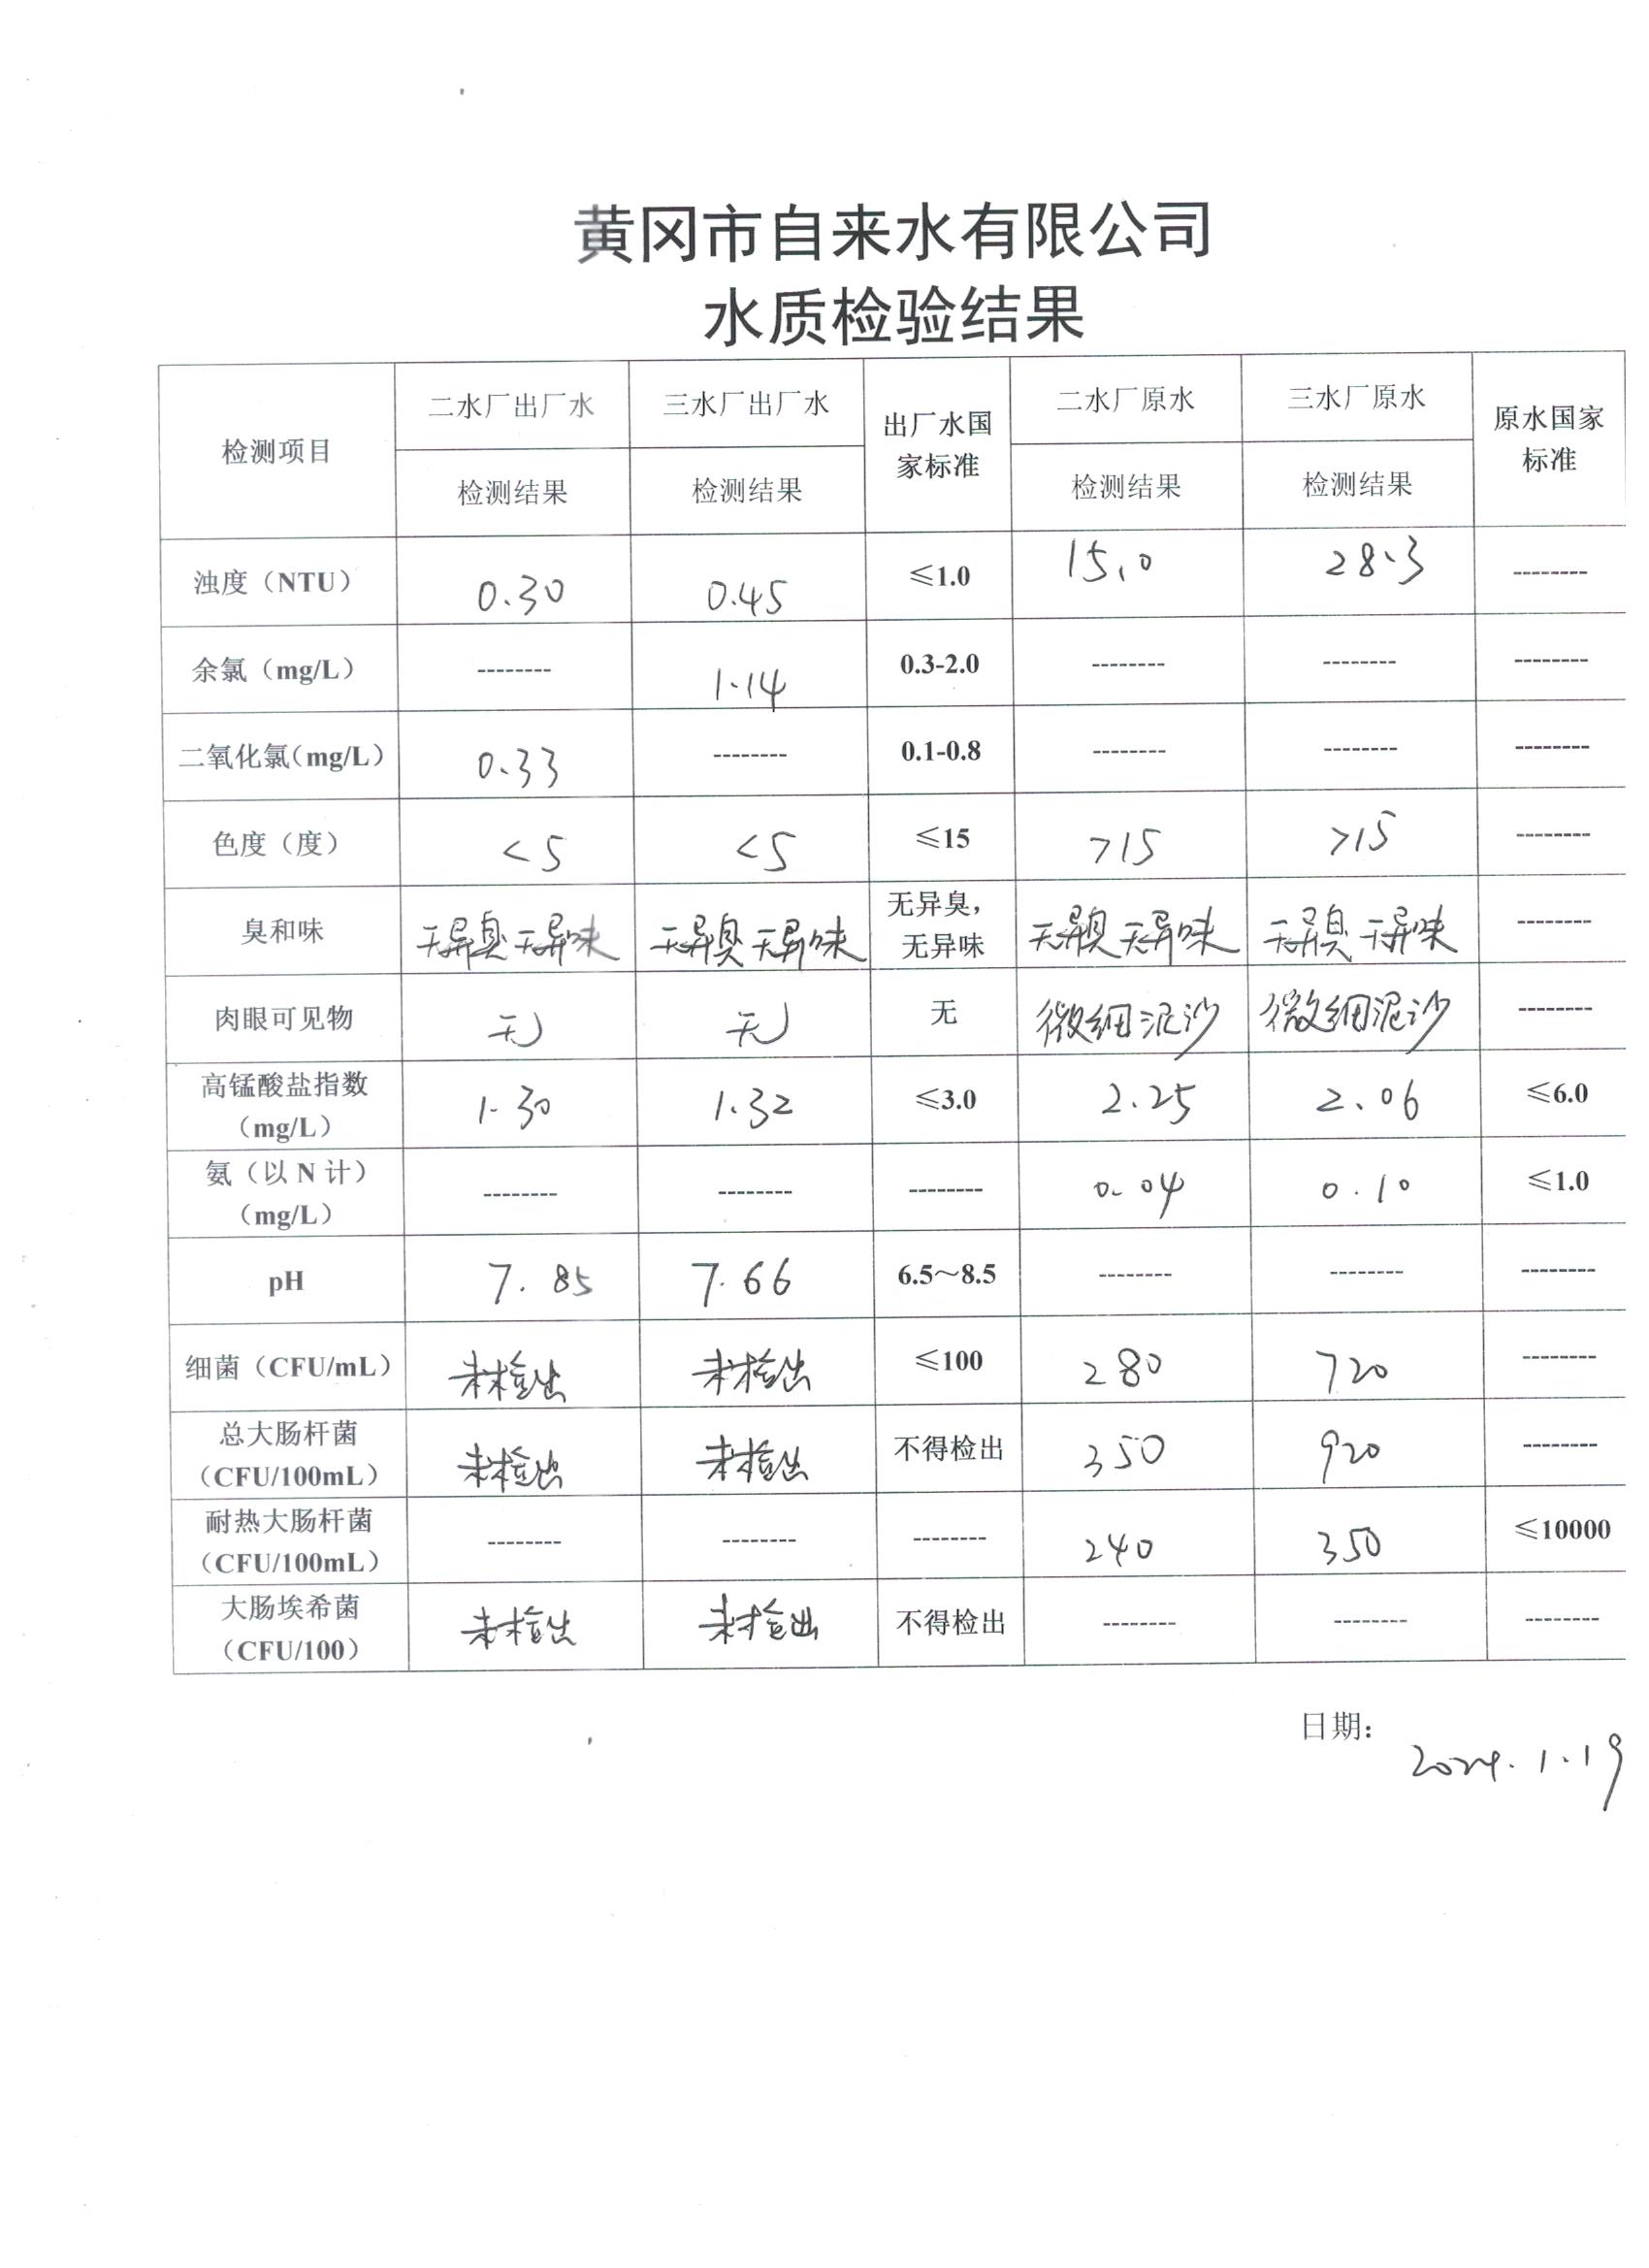 黄冈市自来水有限公司
水质检验结果
检测项目 二水厂出厂水 三水厂出厂水 出厂水国家标准 二水厂原水 三水厂原水 原水国家标准
检测结果 检测结果 检测结果 检测结果
浊度（NTU） 0.30 0.45 ≤1.0 15.0 28.3 --------
余氯（mg/L） -------- 1.14 0.3-2.0 -------- -------- --------
二氧化氯（mg/L） 0.33 -------- 0.1-0.8 -------- -------- --------
色度（度） <5 <5 ≤15 >15 >15 --------
臭和味 无异臭无异味 无异臭无异味 无异臭，无异味 无异臭无异味 无异臭无异味 --------
肉眼可见物 无 无 无 微细泥沙 微细泥沙 --------
高锰酸盐指数（mg/L） 1.30 1.32 ≤3.0 2.25 2.06 ≤6.0
氨（以N计）（mg/L） -------- -------- -------- 0.04 0.10 ≤1.0
pH 7.85 7.66 6.5～8.5 -------- -------- --------
细菌（CFU/mL） 未检出 未检出 ≤100 280 720 --------
总大肠杆菌（CFU/100mL） 未检出 未检出 不得检出 350 920 --------
耐热大肠杆菌（CFU/100mL） -------- -------- -------- 240 350 ≤10000
大肠埃希菌（CFU/100） 未检出 未检出 不得检出 -------- -------- --------
日期：2024.1.19